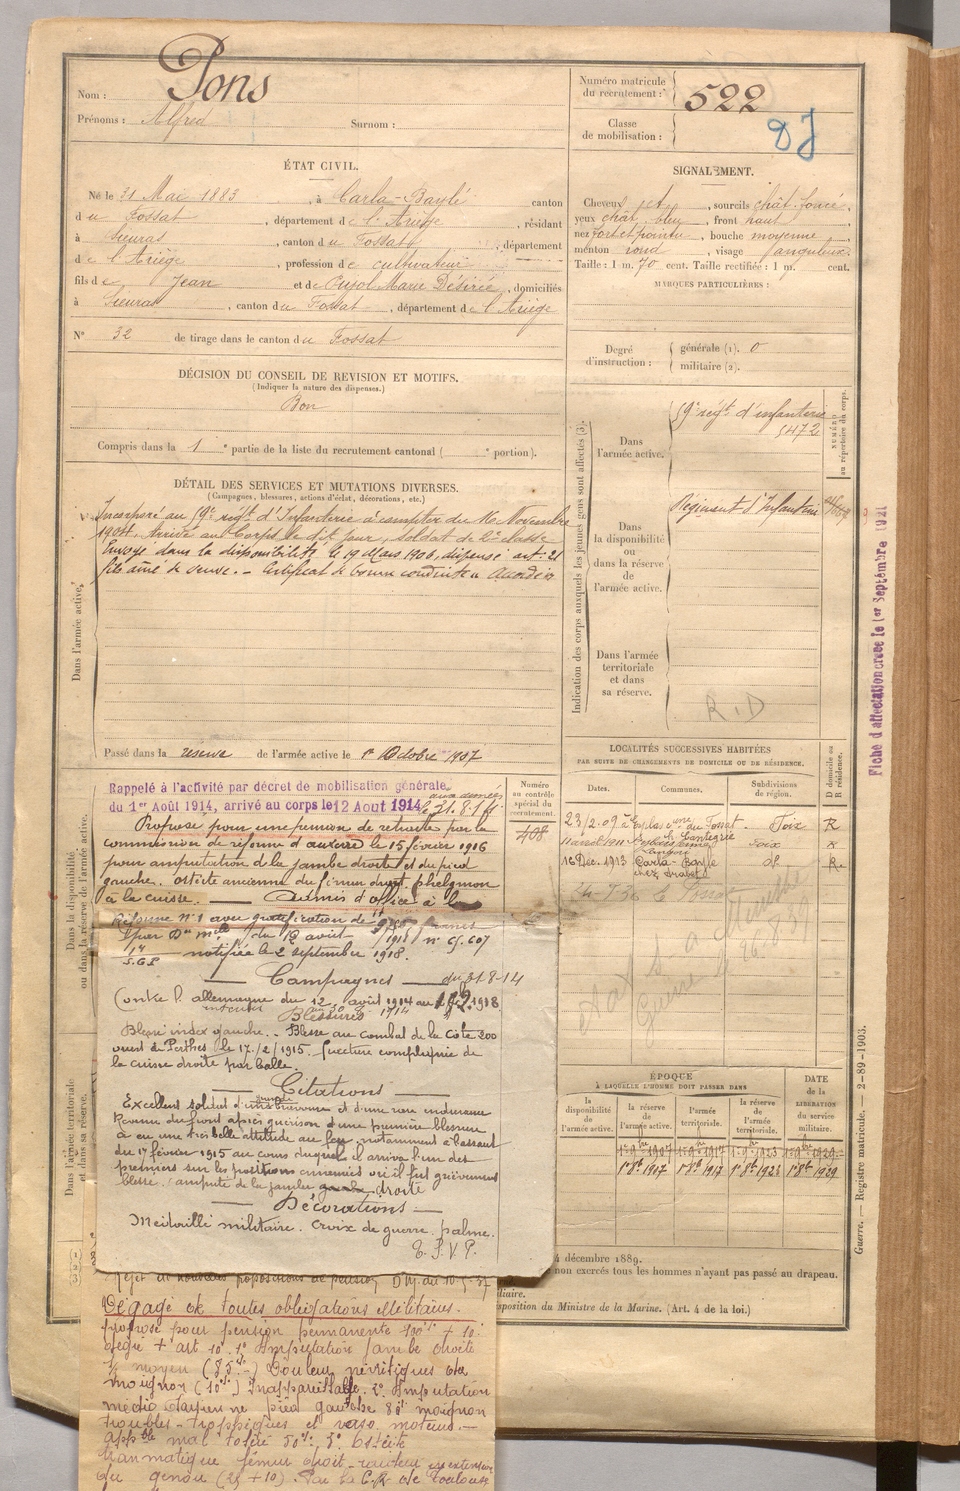 Nom : Pons
Prénoms : Alfred Surnom :
Numéro matricule
du recrutement : 522
Classe
de mobilisation :
ÉTAT CIVIL.
Né le 31 Mai 1883, à Carla-Bayle canton
du Fossat, département de l'Ariège, résidant
à Sieuras, canton du Fossat, département
de l'Ariège, profession de cultivateur
fils de Jean et de Pujol Marie Désirée, domiciliés
à Sieuras, canton du Fossat, département de l'Ariège
N° 32 de tirage dans le canton du Fossat
DÉCISION DU CONSEIL DE REVISION ET MOTIFS.
(Indiquer la nature des dispenses.)
Bon
Compris dans la 1e partie de la liste du recrutement cantonal ( e portion).
SIGNALEMENT.
Cheveux et, sourcils chât. foncé,
yeux chât. bleu, front haut
nez fort et pointu, bouche moyenne
menton rond, visage anguleux.
Taille : 1 m. 70 cent. Taille rectifiée : 1 m. cent.
MARQUES PARTICULIÈRES :
Degré
d'instruction :
générale (1). 0
militaire (2).
DÉTAIL DES SERVICES ET MUTATIONS DIVERSES.
(Campagnes, blessures, actions d'éclat, décorations, etc.)
Incorporé au 59e régt d'Infanterie à compter du 16 Novembre
1904. Arrivé au Corps le dit jour, soldat de 2e classe
Envoyé dans la disponibilité le 19 Mars 1906, dispensé art: 21
fils aîné de veuve. - Certificat de bonne conduite "Accordé"
Dans l'armée active.
Passé dans la réserve de l'armée active le 1er Octobre 1907
Indication des corps auxquels les jeunes gens sont affectés (3).
NUMÉRO
au répertoire du corps.
Dans
l'armée active.
59e régt d'infanterie
5472
Dans
la disponibilité
ou
dans la réserve
de
l'armée active.
Régiment d'Infanterie
Dans l'armée
territoriale
et dans
sa réserve.
R.D
Fiche d'affectation créée le 1er Septembre 1921
LOCALITÉS SUCCESSIVES HABITÉES
PAR SUITE DE CHANGEMENTS DE DOMICILE OU DE RÉSIDENCE.
Dates. Communes. Subdivisions
de région. D domicile ou
R résidence.
23/2.09 du Fossat. Foix R
11 août 1911 Foix R
16 Déc. 1913 Carla-Bayle R
chez
24-7-36 le Fossat
Numéro
au contrôle
spécial du
recrutement.
408
Dans la disponibilité
ou dans la réserve de l'armée active.
Rappelé à l'activité par décret de mobilisation générale
du 1er Août 1914, arrivé au corps le 12 Aout 1914 aux armées
le 31.8.14.
Proposé pour une pension de retraite par la
commission de réforme d'Auxerre le 15 février 1916
pour amputation de la jambe droite et du pied
gauche. ostéite ancienne du fémur droit. phelgmon
à la cuisse. — Admis d'office à la
Réforme N° 1 avec gratification de
du 13 août 1918 n° 65.607
notifiée le 2 septembre 1918.
— Campagnes — du 31-8-14
Contre l'allemagne du 12 août 1914 au 1918
intérieur
Blessures
Blessé index gauche. - Blessé au combat de la Cote 200
ouest de Perthes le 17/2/1915. fracture compliquée de
la cuisse droite par balle.
— Citations —
Excellent soldat d'une bravoure et d'une
Revenu du front après guérison d'une première blessure
a eu une très belle attitude au feu, notamment à l'assaut
du 17 février 1915 au cours duquel il arriva l'un des
premiers sur les positions ennemies où il fut grièvement
blessé. Amputé de la jambe gauche droite
— Décorations —
Médaille militaire. Croix de guerre palme.
T. S. V. P.
Dans l'armée territoriale
et dans sa réserve.
ÉPOQUE
À LAQUELLE L'HOMME DOIT PASSER DANS
DATE
de la
LIBÉRATION
du service
militaire.
la
disponibilité
de
l'armée active.
la réserve
de
l'armée active.
l'armée
territoriale.
la réserve
de l'armée
territoriale.
1er 8bre 1907 1er 8bre 1917 1er 8bre 1923 1er 8bre 1929
4 décembre 1889.
non exercés tous les hommes n'ayant pas passé au drapeau.
disposition du Ministre de la Marine. (Art. 4 de la loi.)
Guerre. — Registre matricule. — 2-89-1903.
Dégagé de toutes obligations Militaires.
proposé pour pension permanente 100% + 10e
degré + art 10. 1° Amputation jambe droite
1/3 moyen (85%) Douleurs névritiques du
moignon (10%) Inappareillable. 2° Amputation
médio tarsienne pied gauche moignon
troubles trophiques et vaso moteurs. —
mal toléré 50%. 3° Ostéite
traumatique fémur droit - raideur en extension
du genou (25 + 10). Par la C.R de Toulouse